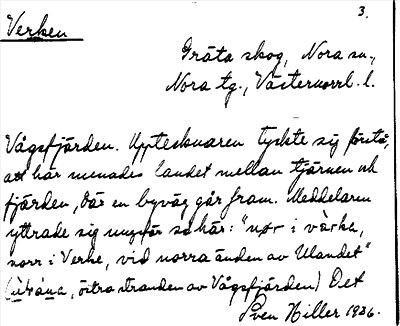 3.
Verken
Gräta skog, Nora sn.,
Nora tg., Västernorrl. l.
Vågsfjärden. Upptecknaren tyckte sig förstå,
att här menades landet mellan tjärnen och
fjärden, där en byväg går fram. Meddelaren
yttrade sig ungefär så här: "nør i
norr i Verke, vid norra änden av Ulandet"
östra stranden av Vågsfjärden) Det
Sven Hiller 1936.